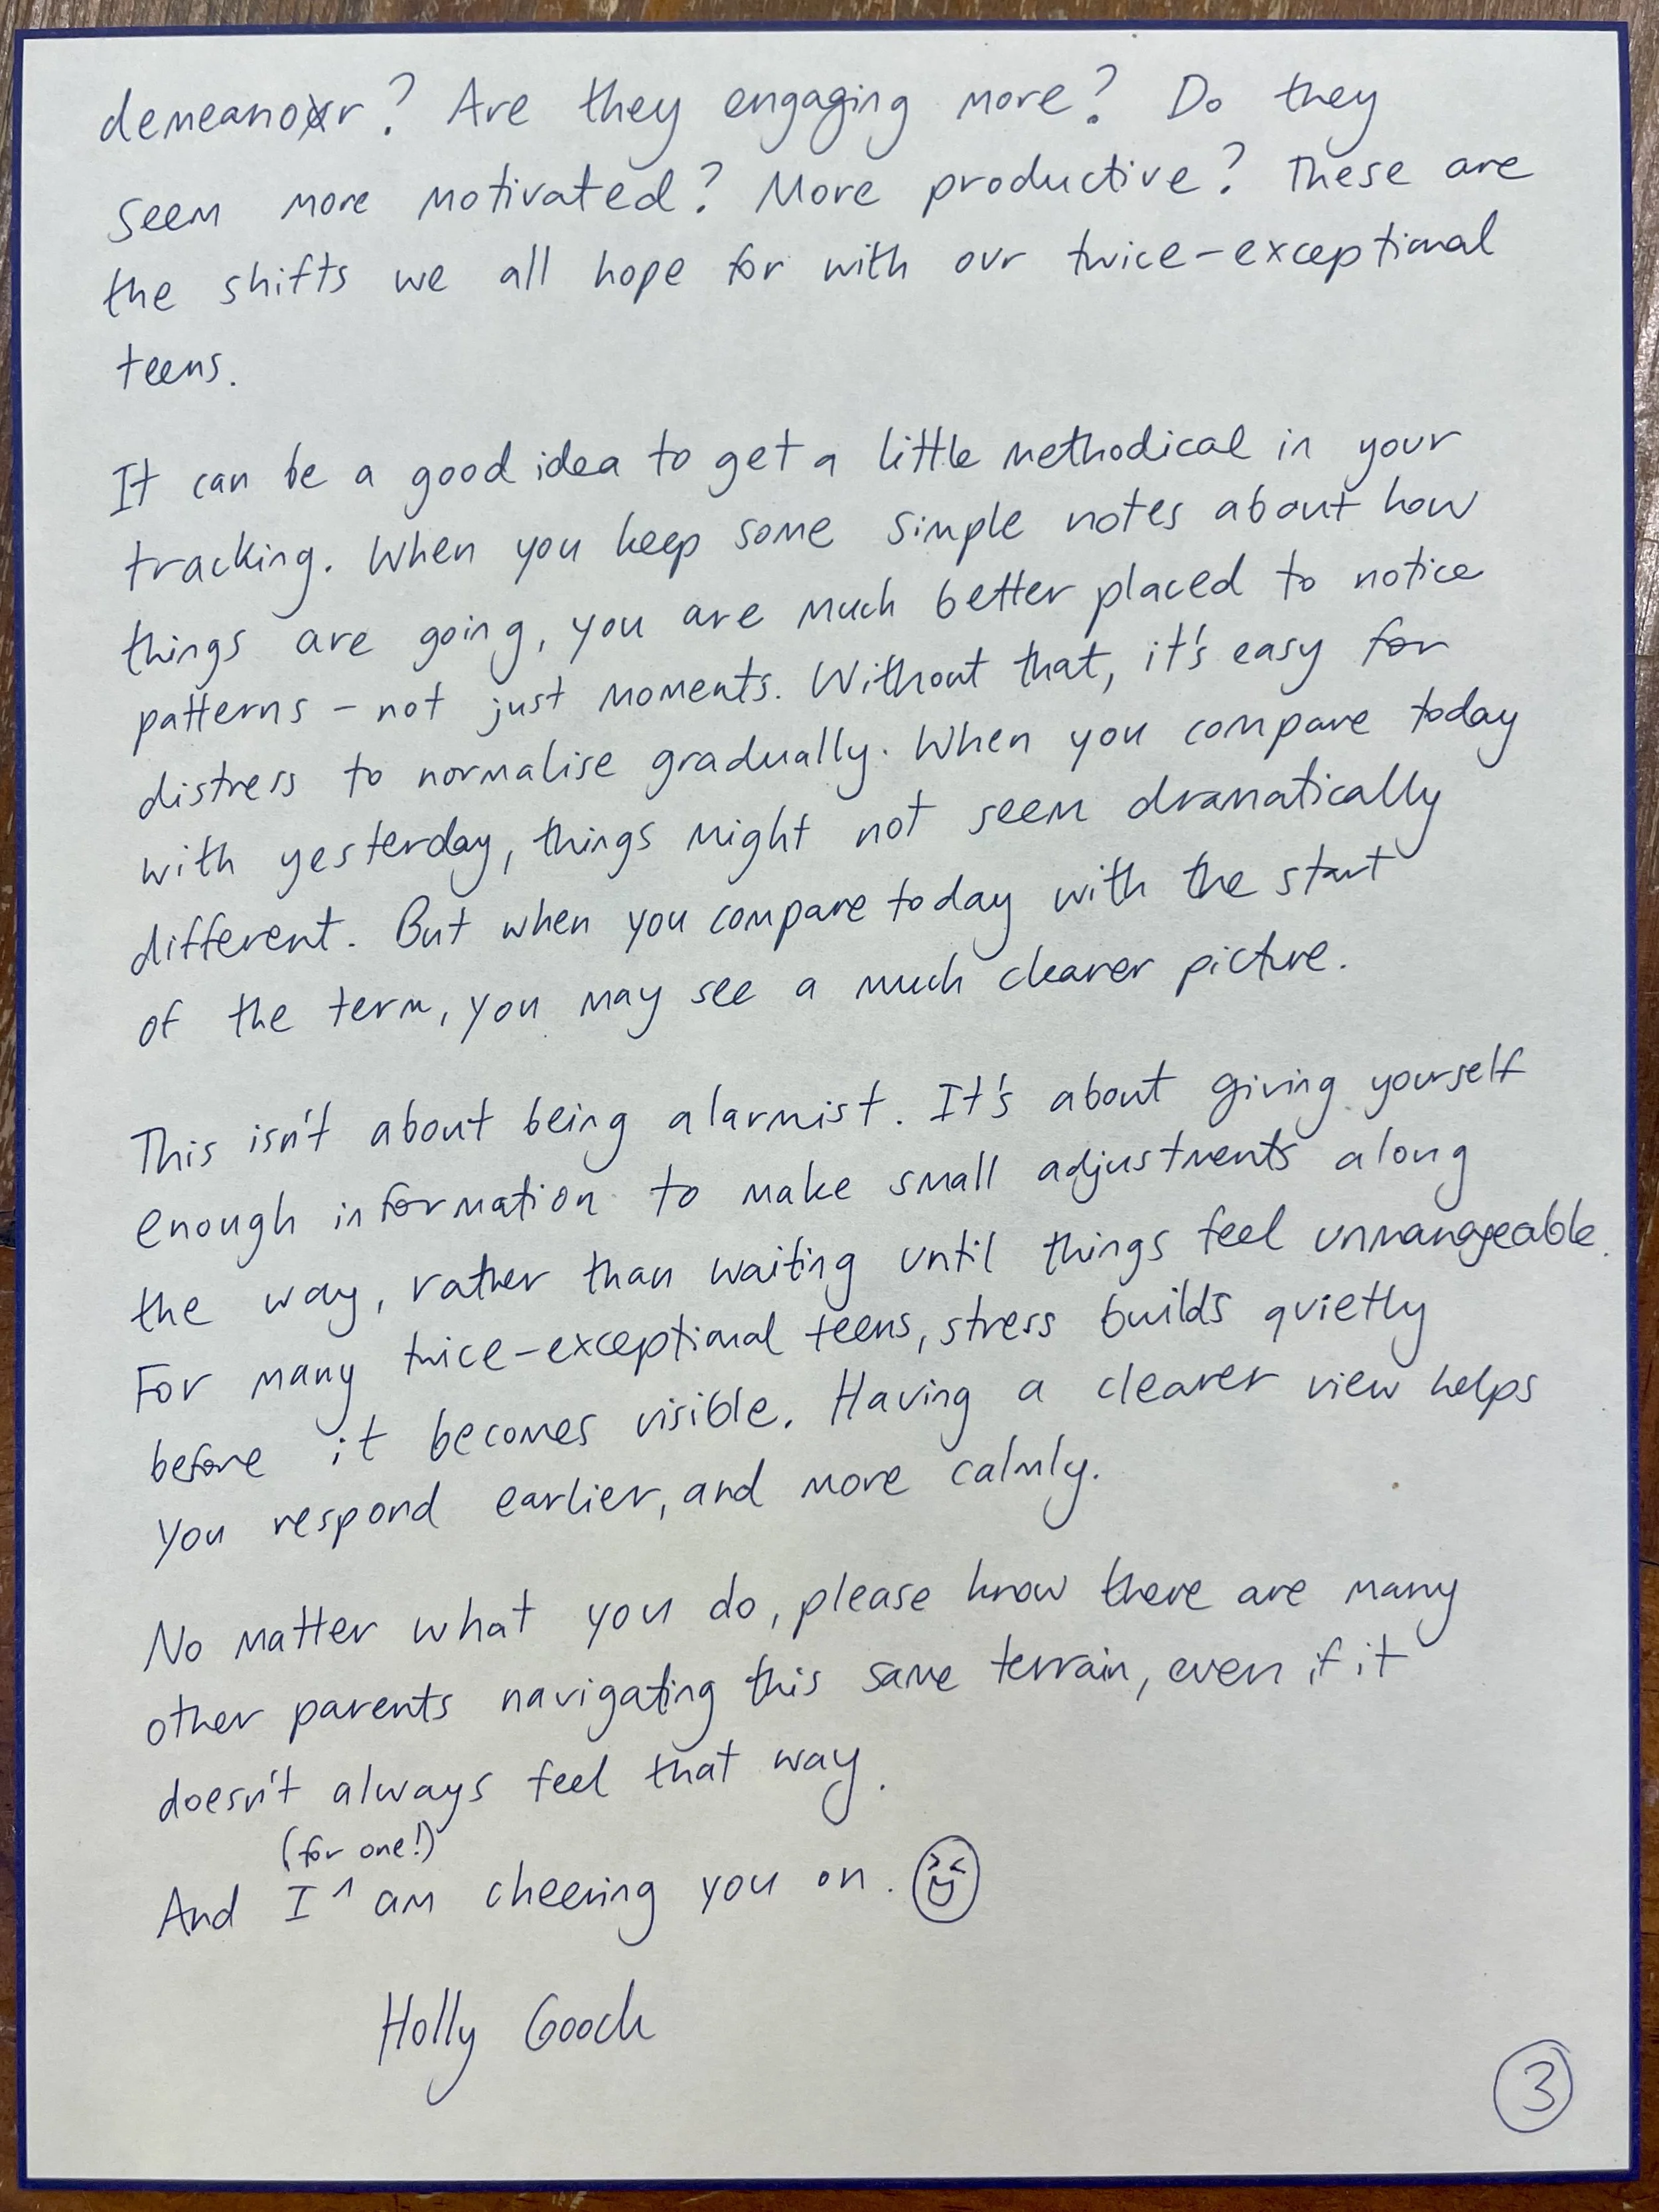 demeanor? Are they engaging more? Do they
seem more motivated? More productive? These are
the shifts we all hope for with our twice-exceptional
teens.
It can be a good idea to get a little methodical in your
tracking. When you keep some simple notes about how
things are going, you are much better placed to notice
patterns - not just moments. Without that, it's easy for
distress to normalise gradually. When you compare today
with yesterday, things might not seem dramatically
different. But when you compare today with the start
of the term, you may see a much clearer picture.
This isn't about being alarmist. It's about giving yourself
enough information to make small adjustments along
the way, rather than waiting until things feel unmangeable.
For many twice-exceptional teens, stress builds quietly
before it becomes visible. Having a clearer view helps
you respond earlier, and more calmly.
No matter what you do, please know there are many
other parents navigating this same terrain, even if it
doesn't always feel that way.
(for one!)
And I ^ am cheering you on.
Holly Gooch
3